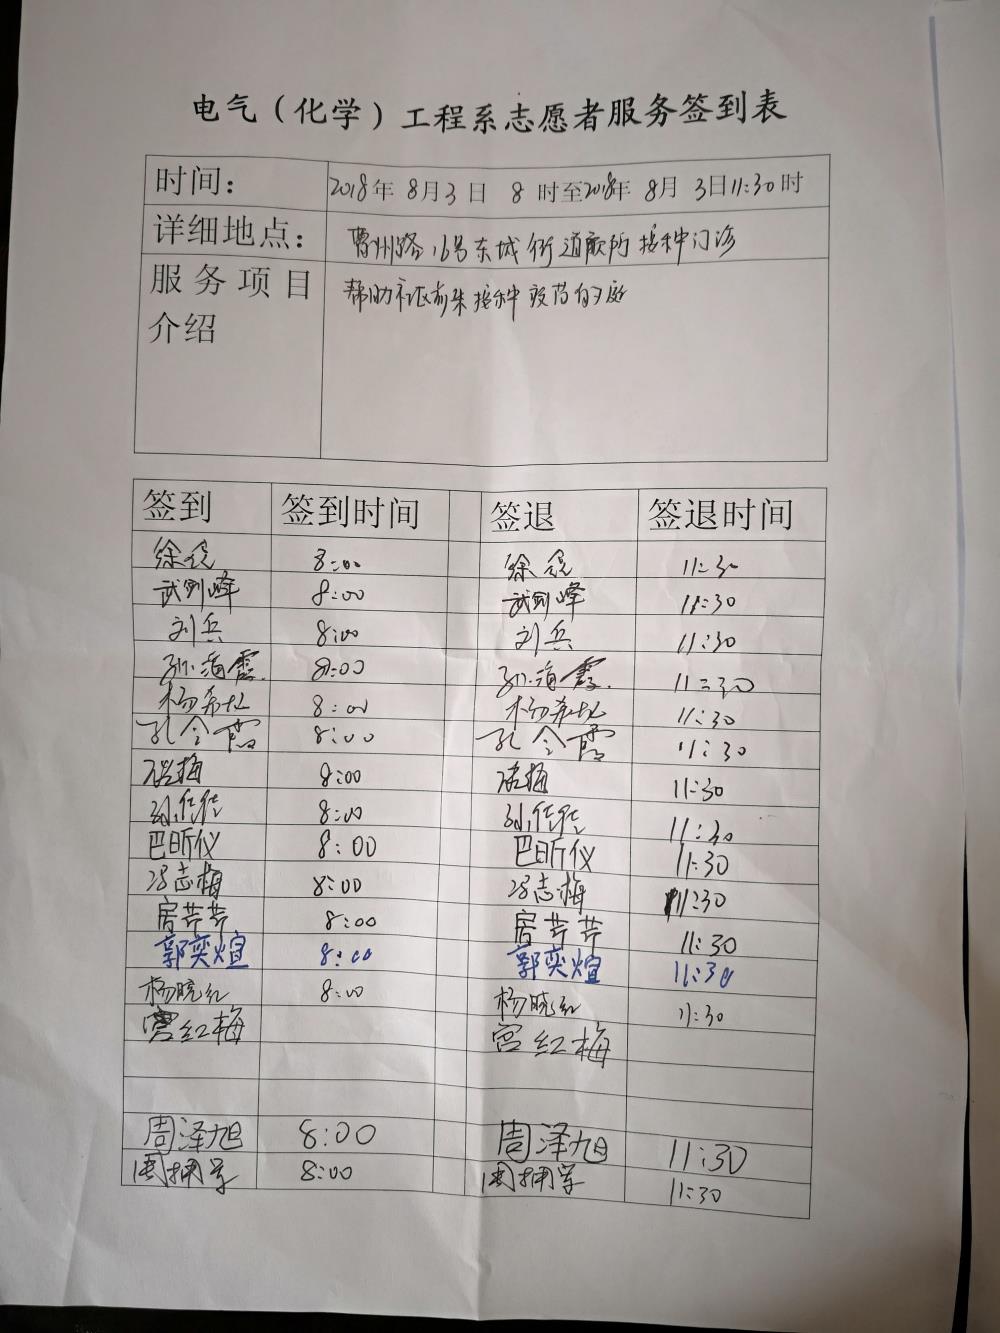 电气（化学）工程系志愿者服务签到表
时间： 2018年 8月3日 8 时至2018年 8月 3日11:30时
详细地点： 曹州路16号东城街道 所 接种门诊
服务项目介绍 帮助 接种 疫苗的
签到 签到时间 签退 签退时间
徐 8:00 徐 11:30
武 峰 8:00 武 峰 11:30
刘兵 8:00 刘兵 11:30
孙海霞 8:00 孙海霞 11:30
杨希 8:00 杨希 11:30
孔令霞 8:00 孔令霞 11:30
梅 8:00 梅 11:30
孙佳佳 8:00 孙佳佳 11:30
巴昕仪 8:00 巴昕仪 11:30
冯志梅 8:00 冯志梅 11:30
房芹芹 8:00 房芹芹 11:30
郭奕煊 8:00 郭奕煊 11:30
杨晓红 8:00 杨晓红 11:30
宫红梅 宫红梅
周泽旭 8:00 周泽旭 11:30
8:00 11:30